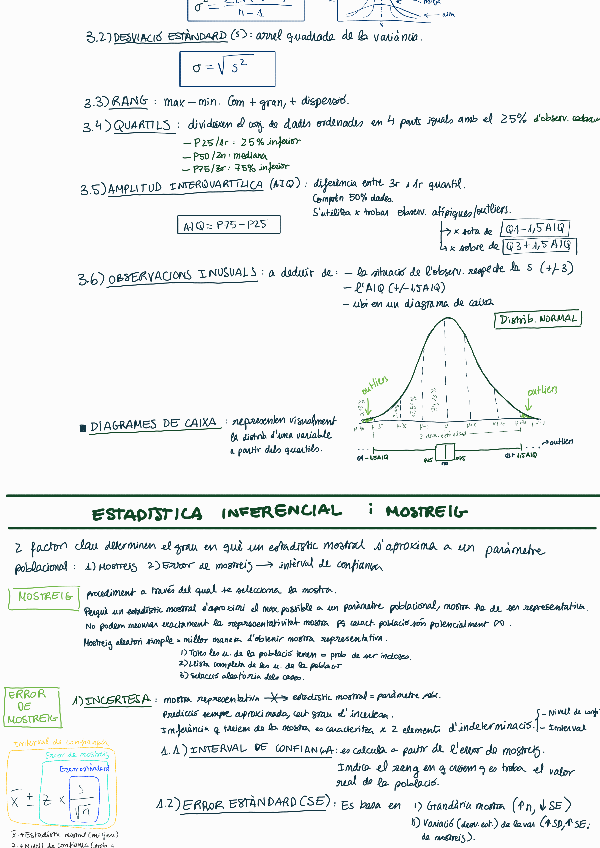 n-1
3.2) DESVIACIÓ ESTÀNDARD (S): arrel quadrada de la variància.
σ = √s²
3.3) RANG : max - min. Com + gran, + dispersió.
3.4) QUARTILS : divideixen el conj. de dades ordenades en 4 parts iguals amb el 25% d'observ. cadascuna
- P25/1r : 25% inferior
- P50/2n : mediana
- P75/3r : 75% inferior
3.5) AMPLITUD INTERQUARTÍLICA (AIQ) : diferència entre 3r i 1r quantil.
Comprèn 50% dades.
S'utilitza x trobar observ. atípiques/outliers.
AIQ = P75 - P25
→ x sota de Q1-1,5AIQ
→ x sobre de Q3+1,5AIQ
3.6) OBSERVACIONS INUSUALS : a deduir de : - la situació de l'observ. respecte la s (+/-3)
- l'AIQ (+/-1,5AIQ)
- ubi en un diagrama de caixa
Distrib. NORMAL
outliers
outliers
■ DIAGRAMES DE CAIXA : representen visualment
la distrib d'una variable
a partir dels quartils.
→ outliers
ESTADÍSTICA INFERENCIAL i MOSTREIG
2 factors clau determinen el grau en què un estadístic mostral s'aproxima a un paràmetre
poblacional : 1) Mostreig 2) Error de mostreig → interval de confiança
MOSTREIG
procediment a través del qual se selecciona la mostra.
Perquè un estadístic mostral s'aproximi el max possible a un paràmetre poblacional, mostra ha de ser representativa.
No podem mesurar exactament la representativitat mostra pq caract. població són potencialment ∞.
Mostreig aleatori simple = millor manera d'obtenir mostra representativa.
1) Totes les u. de la població tenen = prob de ser incloses.
2) Llista completa de les u. de la població
3) Selecció aleatòria dels casos.
ERROR
DE
MOSTREIG
1) INCERTESA : mostra representativa → estadístic mostral = paràmetre
Predicció sempre aproximada, cert grau d'incertesa.
Inferència q traiem de la mostra es caracteritza x 2 elements d'indeterminació:
- Nivell de confi
- Interval
1.1) INTERVAL DE CONFIANÇA : es calcula a partir de l'error de mostreig.
Indica el rang en q creiem q es troba el valor
real de la població.
Interval de confiança
Error de mostreig
Error estàndard
x̄ ± z × s/√n
1.2) ERROR ESTÀNDARD (SE) : Es basa en 1) Grandària mostra (↑n, ↓SE)
2) Variació (desv. est.) de la var (↑SD, ↑SE)
de mostreig).